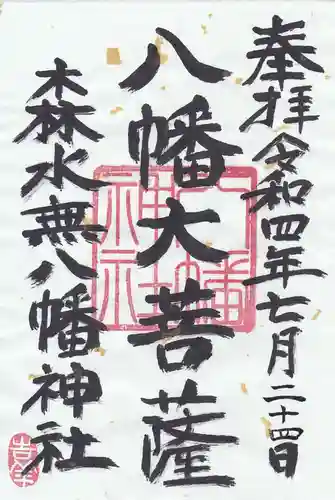 奉拝令和四年七月二十四日
八幡大菩薩
森水無八幡神社
八幡神社